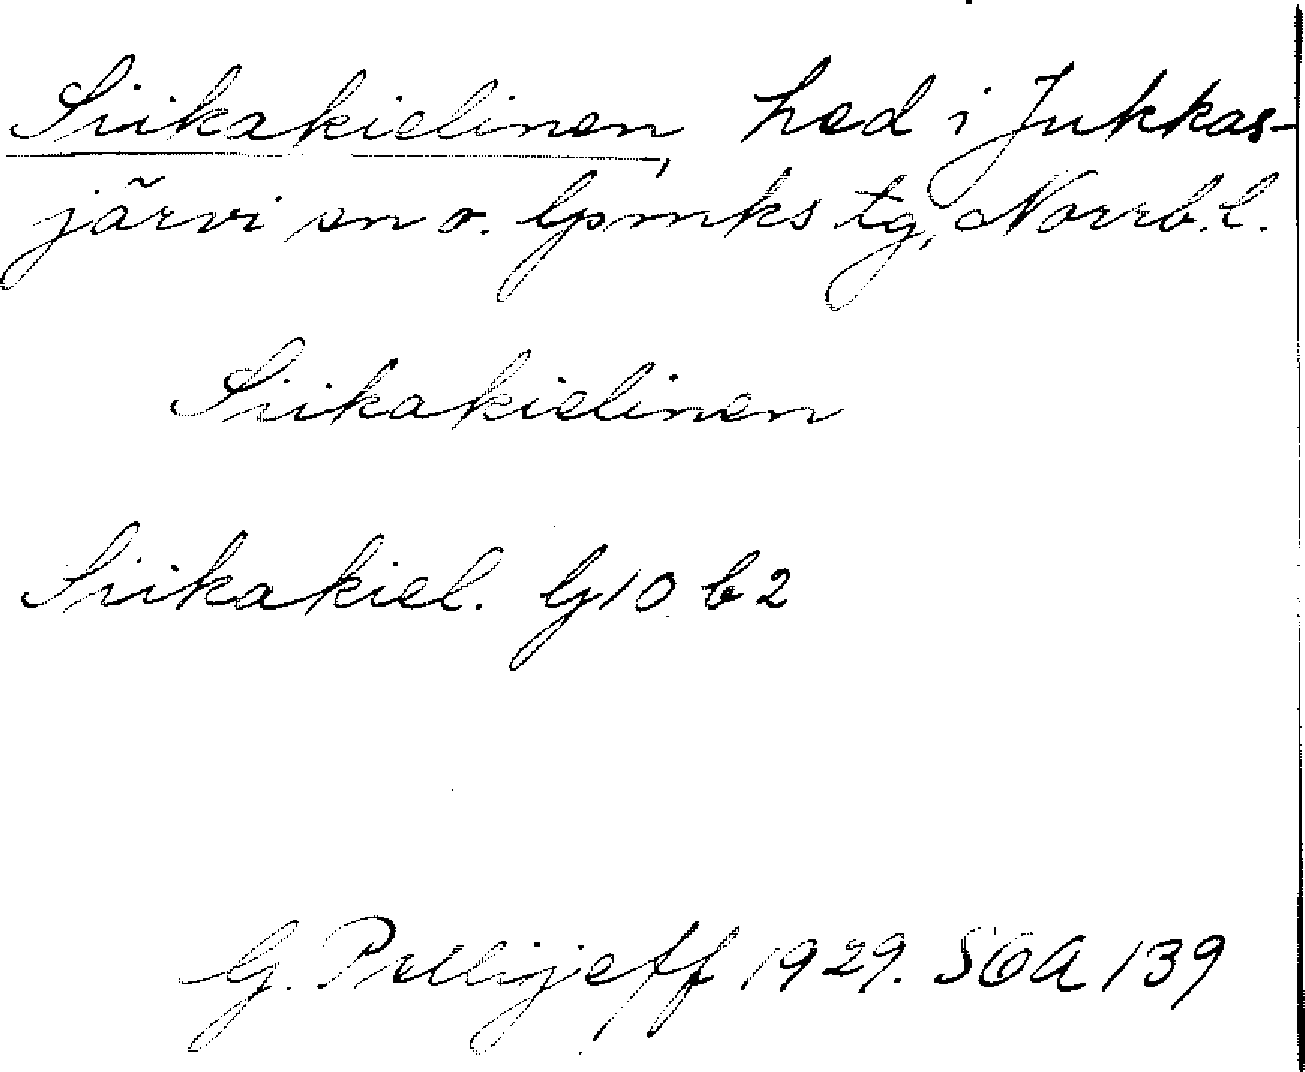 Siikakielinen, hed i Jukkas-
järvi sn o. lpmks tg, Norrb. l.
Siikakielinen
Siikakiel. G 10 b 2
G. Pellijeff 1929. SOA 139